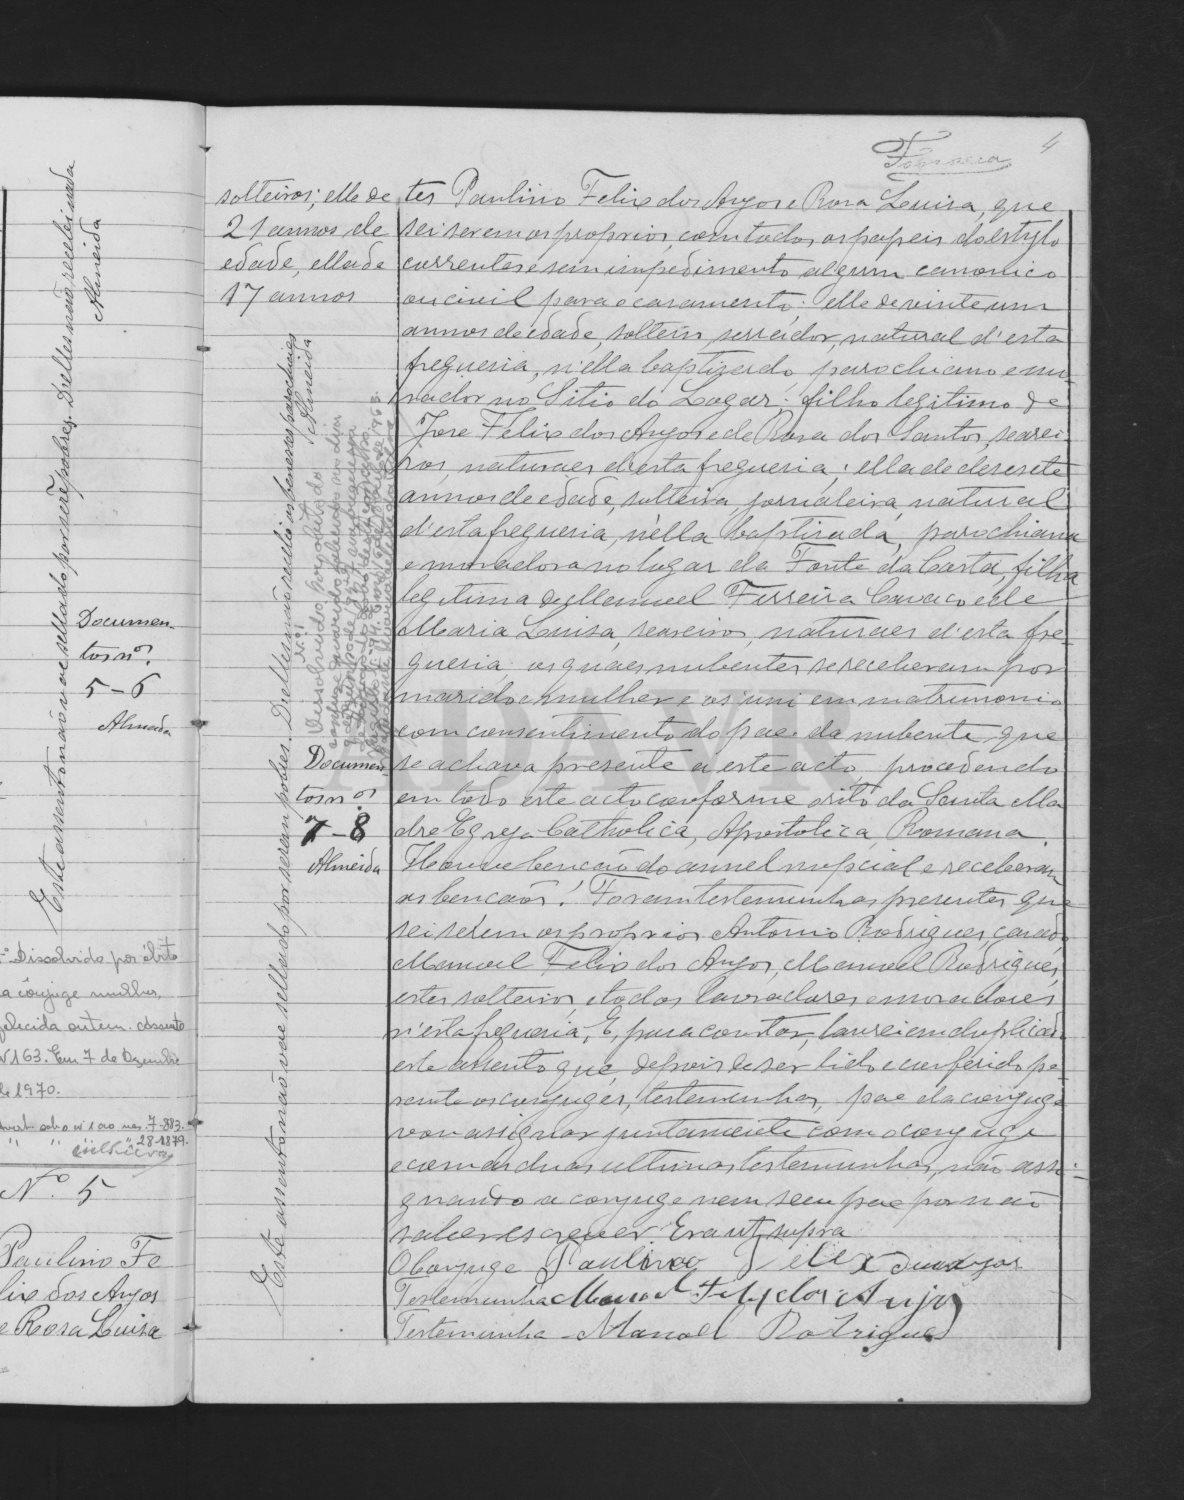 Fonseca
4
solteiros; elle de
21 annos de
edade, ella de
17 annos
tes Paulino Felix dos Anjos e Rosa Luisa, que
sei serem os proprios, com todos os papeis do estylo
correntes e sem impedimento algum canonico
ou civil para o casamento: elle de vinte um
annos de edade, solteiro, serrador, natural d'esta
freguesia, n'ella baptisado, parochiano e mo-
rador no Sitio do Lagar: filho legitimo de
Jose Felix dos Anjos e de Rosa dos Santos, searei-
ros, naturaes d'esta freguesia; ella de desesete
annos de edade, solteira, jornaleira, natural
d'esta freguesia, n'ella baptisada, parochiana
e moradora no lugar da Fonte da Costa, filha
legitima de Manuel Ferreira Cavaco e de
Maria Luisa, seareiros, naturaes d'esta fre-
guesia os quaes nubentes se receberam por
marido e mulher e os uni em matrimonio
com consentimento do pae da nubente, que
se achava presente a este acto, procedendo
em todo este acto conforme o rito da Santa Ma-
dre Egreja Catholica, Apostolica, Romana.
Houve benção do annel nupcial e receberam
as bençãos. Foram testemunhas presentes que
sei serem os proprios Antonio Rodrigues, casado,
Manuel Felix dos Anjos, Manuel Rodrigues,
estes solteiros, e todos lavradores e moradores
n'esta freguesia. E, para constar, lavrei em duplicado
este assento que, depois de ser lido e conferido pe-
rante os conjuges, testemunhas, pae da conjuge
vou assignar juntamente com o conjuge
e com as duas ultimas testemunhas, não assi-
gnando a conjuge nem seu pae por não
saberem escrever. Era ut supra
O Conjuge Paulino Felix dos Anjos
Testemunha Manoel Felix dos Anjos
Testemunha - Manoel Rodrigues
Este assento não vae sellado por serem pobres. D'elles não recebi os benesses parochiaes
Almeida
Nº 1
Dissolvido por obito do
conjuge marido
Documen-
tos nos
7-8
Almeida
Este assento não vae sellado por serem pobres. D'elles não recebi nada
Almeida
Documen-
tos nos
5-6
Almeida
Dissolvido por óbito
a cônjuge mulher,
falecida ontem. Assento
Nº 163. Em 7 de Dezembro
de 1970.
Nº 5
Paulino Fe
lix dos Anjos
e Rosa Luisa